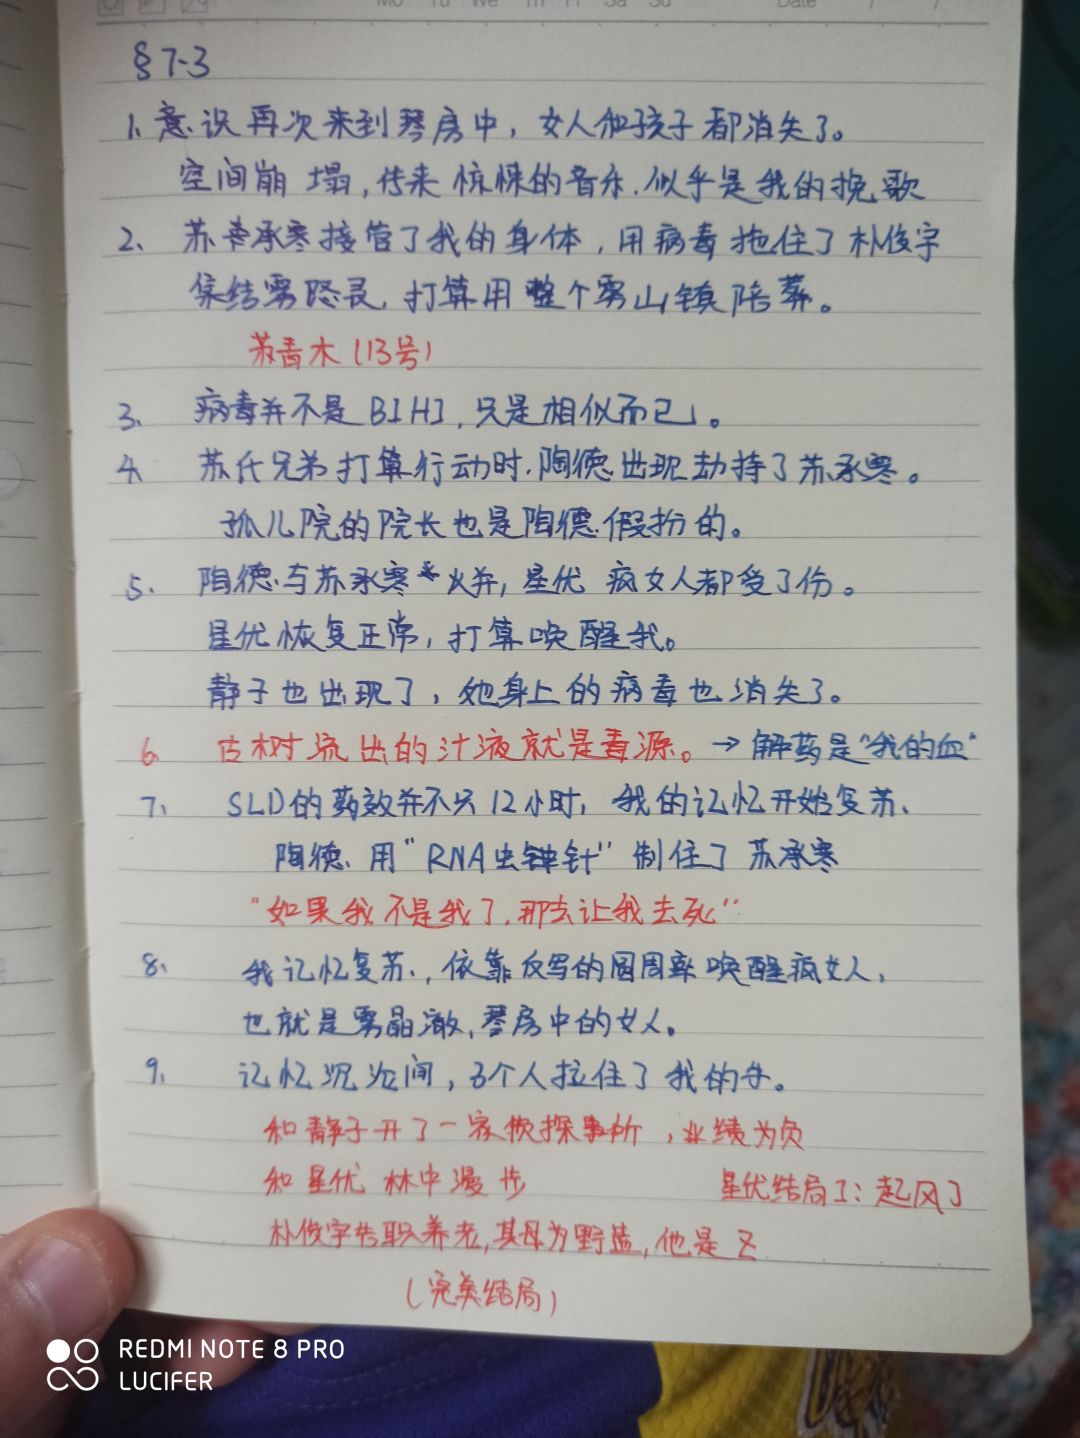 Mo Tu We Th Fr Sa Su Date / /
§7-3
1、意识再次来到琴房中，女人和孩子都消失了。
空间崩塌，传来惊悚的音乐.似乎是我的挽歌
2、苏承寒接管了我的身体，用病毒拖住了朴俊宇
集结雾隐灵，打算用整个雾山镇陪葬。
苏青木(13号)
3、病毒并不是BIHI，只是相似而已。
4、苏氏兄弟打算行动时.陶德出现劫持了苏承寒。
孤儿院的院长也是陶德假扮的。
5、陶德与苏承寒火并，星优 疯女人都受了伤。
星优恢复正常，打算唤醒我。
静子也出现了，她身上的病毒也消失了。
6、古树流出的汁液就是毒源。→解药是"我的血"
7、SLD的药效并不只12小时，我的记忆开始复苏、
陶德、用"RNA虫钟针"制住了苏承寒
"如果我不是我了.那就让我去死"
8、我记忆复苏、依靠反写的圆周率唤醒疯女人，
也就是雾晶澈,琴房中的女人。
9、记忆沉沦间，3个人拉住了我的手。
和静子开了一家侦探事所，业绩为负
和星优 林中漫步
星优结局了：起风了
朴俊宇告职养老,其母为野蓝,他是Z
(完美结局)
REDMI NOTE 8 PRO
LUCIFER